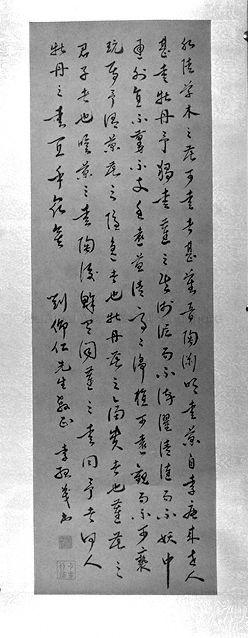 水陸草木之花可愛者甚蕃晉陶淵明愛菊自李唐來世人
甚愛牡丹予獨愛蓮之出淤泥而不染濯清漣而不妖中
通外直不蔓不支香遠益清亭亭淨植可遠觀而不可褻
玩焉予謂菊花之隱逸者也牡丹花之富貴者也蓮花之
君子者也噫菊之愛陶後鮮有聞蓮之愛同予者何人
牡丹之愛宜乎眾矣
劉仰仁先生教正 李